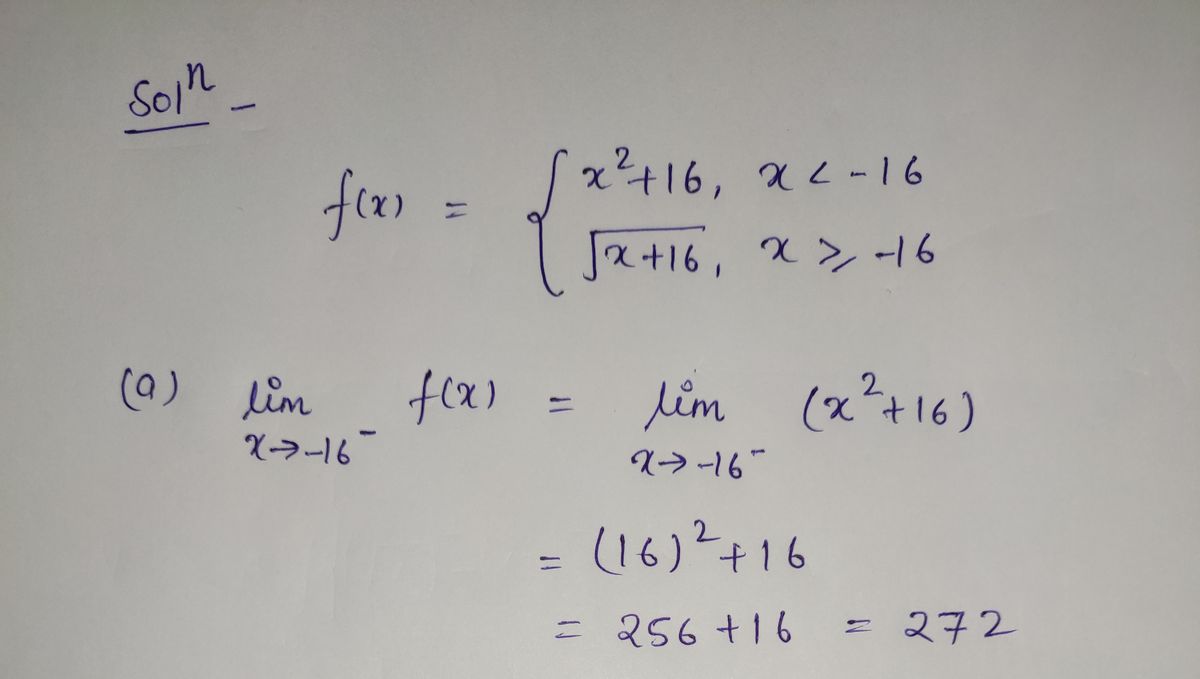 Solⁿ -
f(x) = { x²+16, x < -16
√(x+16), x ⩾ -16
(a) lim f(x) = lim (x²+16)
x→-16⁻ x→-16⁻
= (16)²+16
= 256+16 = 272